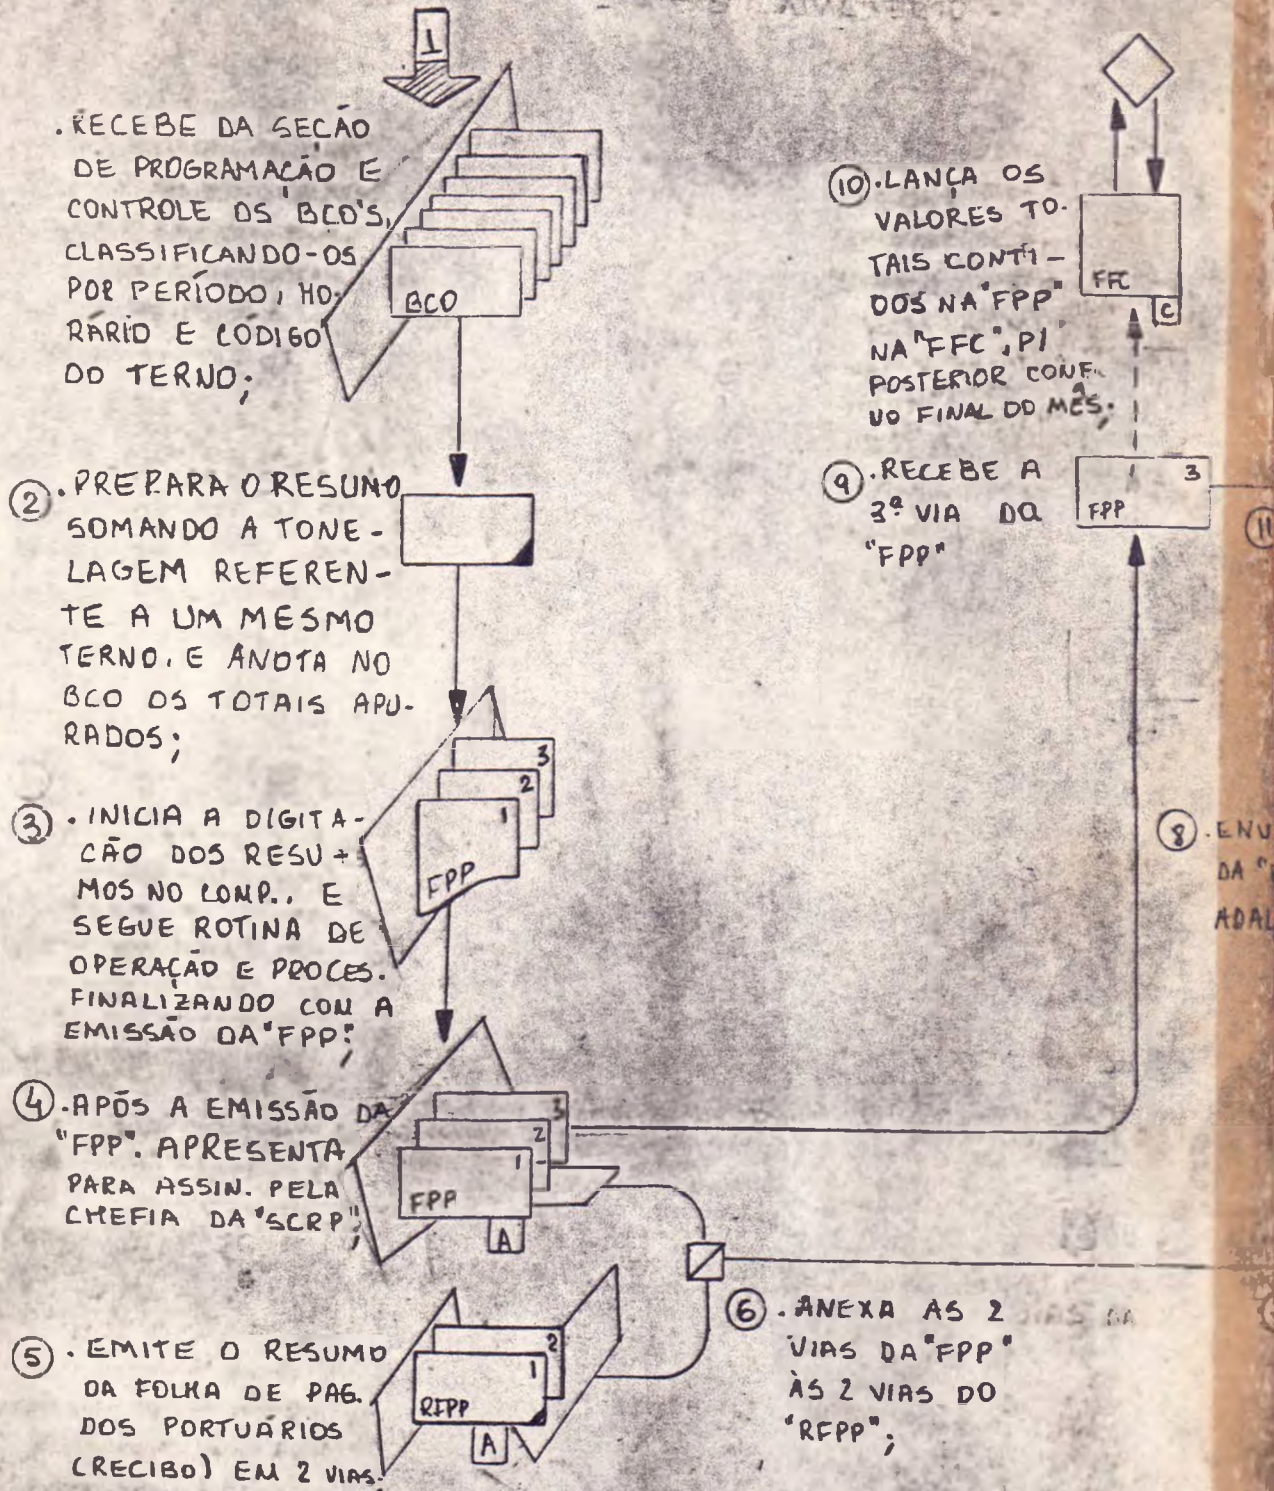 1
. RECEBE DA SEÇÃO
DE PROGRAMAÇÃO E
CONTROLE OS "BCO'S,
CLASSIFICANDO-OS
POR PERÍODO, HO-
RÁRIO E CÓDIGO
DO TERNO;
BCO
② . PREPARA O RESUMO
SOMANDO A TONE-
LAGEM REFEREN-
TE A UM MESMO
TERNO, E ANOTA NO
BCO OS TOTAIS APU-
RADOS;
3
2
1
FPP
③ . INICIA A DIGITA-
ÇÃO DOS RESU-
MOS NO COMP., E
SEGUE ROTINA DE
OPERAÇÃO E PROCES.
FINALIZANDO COM A
EMISSÃO DA "FPP";
④ . APÓS A EMISSÃO DA
"FPP". APRESENTA
PARA ASSIN. PELA
CHEFIA DA "SCRP";
3
2
1
FPP
A
⑤ . EMITE O RESUMO
DA FOLHA DE PAG.
DOS PORTUÁRIOS
(RECIBO) EM 2 VIAS.
2
1
RFPP
A
⑥ . ANEXA AS 2
VIAS DA "FPP"
ÀS 2 VIAS DO
"RFPP";
⑧ . ENV
DA "
ADAL
⑨ . RECEBE A
3ª VIA DA
"FPP"
3
FPP
⑪
⑩ . LANÇA OS
VALORES TO-
TAIS CONTI-
DOS NA "FPP"
NA "FFC", P/
POSTERIOR CONF.
NO FINAL DO MÊS;
FFC
C